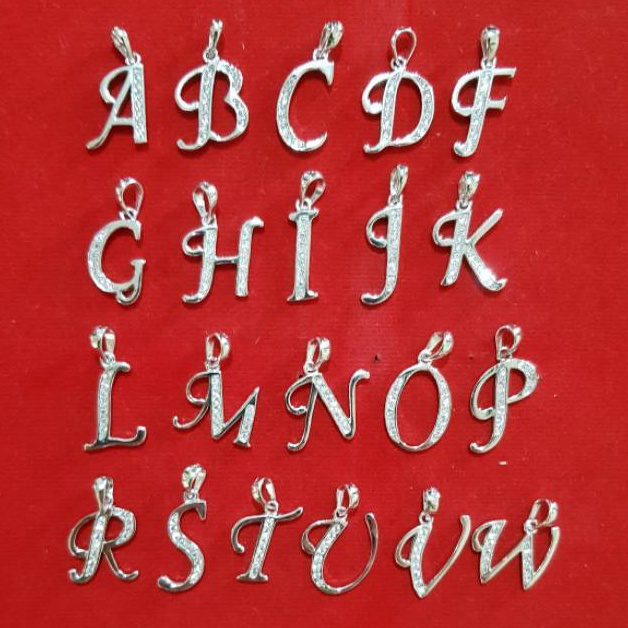 A B C D F
G H I J K
L M N O P
R S T U V W